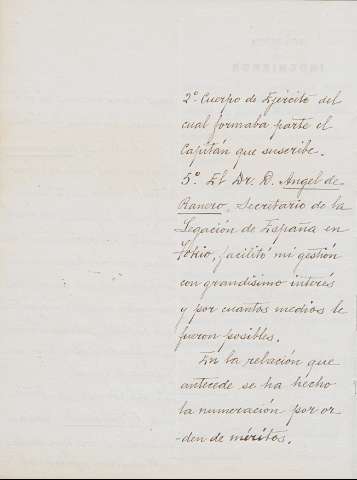 2º Cuerpo de Ejército del
cual formaba parte el
Capitán que suscribe.
5º. El Dr. D. Angel de
Ranero, Secretario de la
Legación de España en
Tokio, facilitó mi gestión
con grandísimo interés
y por cuantos medios le
fueron posibles.
En la relación que
antecede se ha hecho
la numeración por or
-den de méritos.